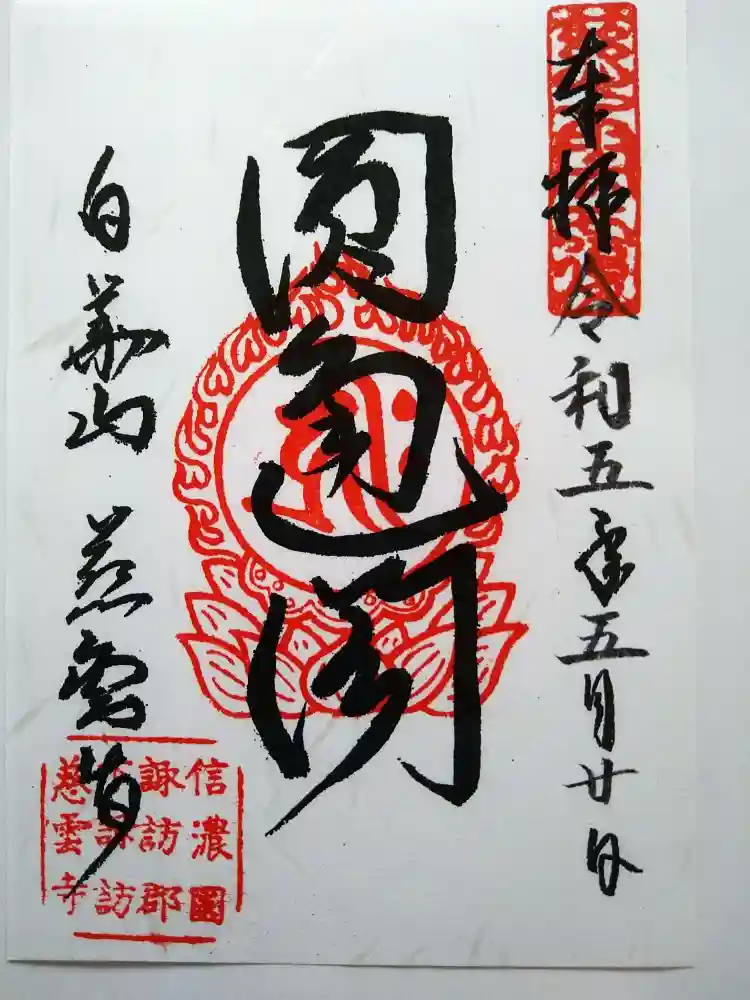 奉拝 令和五年五月廿日
圓通閣
白華山 慈雲寺
信濃國
諏訪郡
下諏訪
慈雲寺